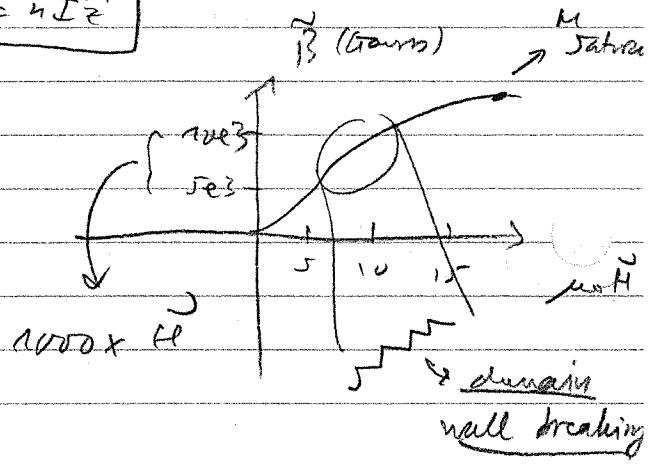 = nIz
B (Gauss)
M
satura
10e3
5e3
5 10 15
μ0H
1000x H
domain
wall breaking